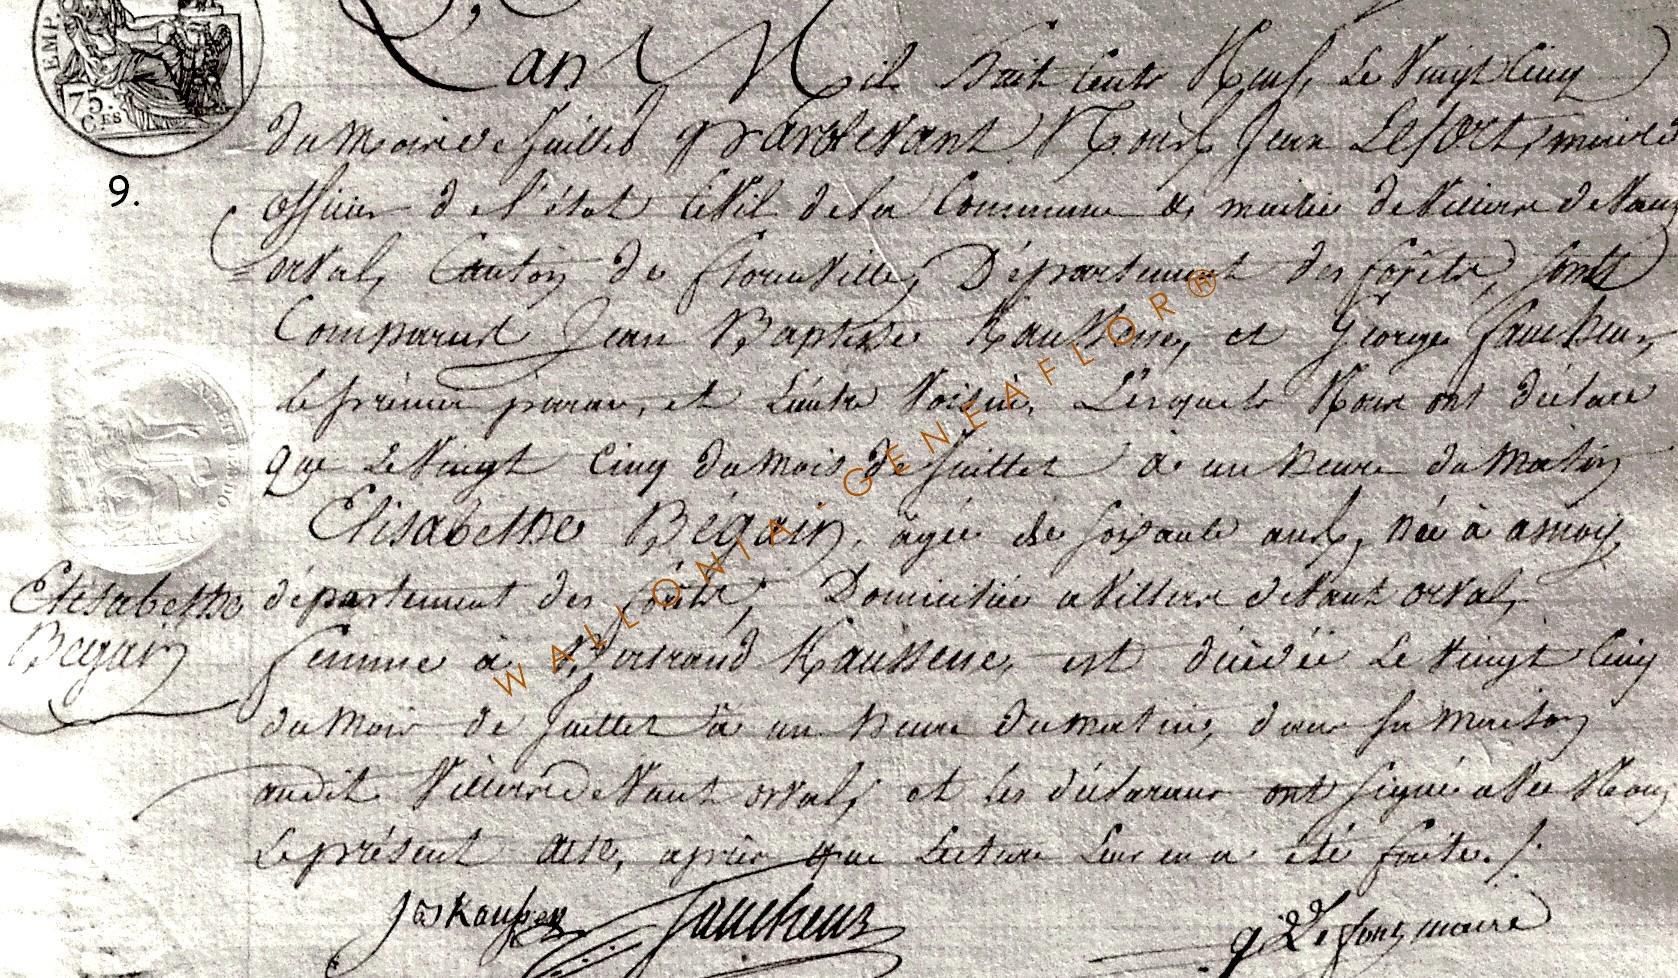 EMP.
75.
C.ES
9.
L'an Mil huit Cents Neuf, Le Vingt Cinq
du mois de Juillet pardevant Nous Jean Lefort, maire
officier de l'état Civil de la Commune & mairie de Villiers deVant
orval, Canton de florenville, Département des forêts, sonts
Comparus Jean Baptiste Kaussene, et George Faucheur,
le prémier paran, et L'autre Voisin, Lésquels Nous ont déclaré
que Le Vingt Cinq du Mois de Juillet à un heure du Matin
Elisabethe Bégain, agée de soisante ans, née à
département des forêts, Domiciliée a Villiers deVant orval,
femme à Bertrand Kaussene, est décédée Le Vingt Cinq
du Mois de Juillet à un heure du matin, dans sa Maison
audit Villiers deVant orval, et les déclarans ont signé aVec Nous
Le présent acte, après que Lecture Leur en a été faite. /.
Elisabethe
Begain
Faucheur
Lefort maire
WALLONIA - GENEAFLOR®